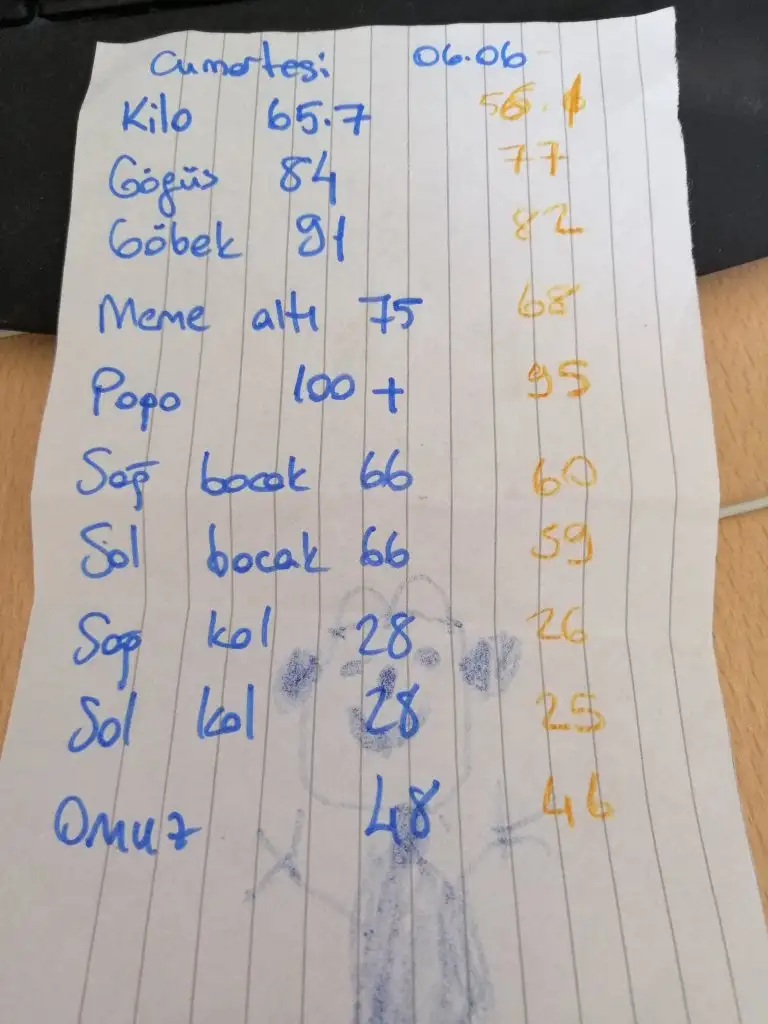 Cumartesi 06.06
Kilo 65.7 56.1
Göğüs 84 77
Göbek 91 82
Meme altı 75 68
Popo 100+ 95
Sağ bacak 66 60
Sol bacak 66 59
Sağ kol 28 26
Sol kol 28 25
Omuz 48 46